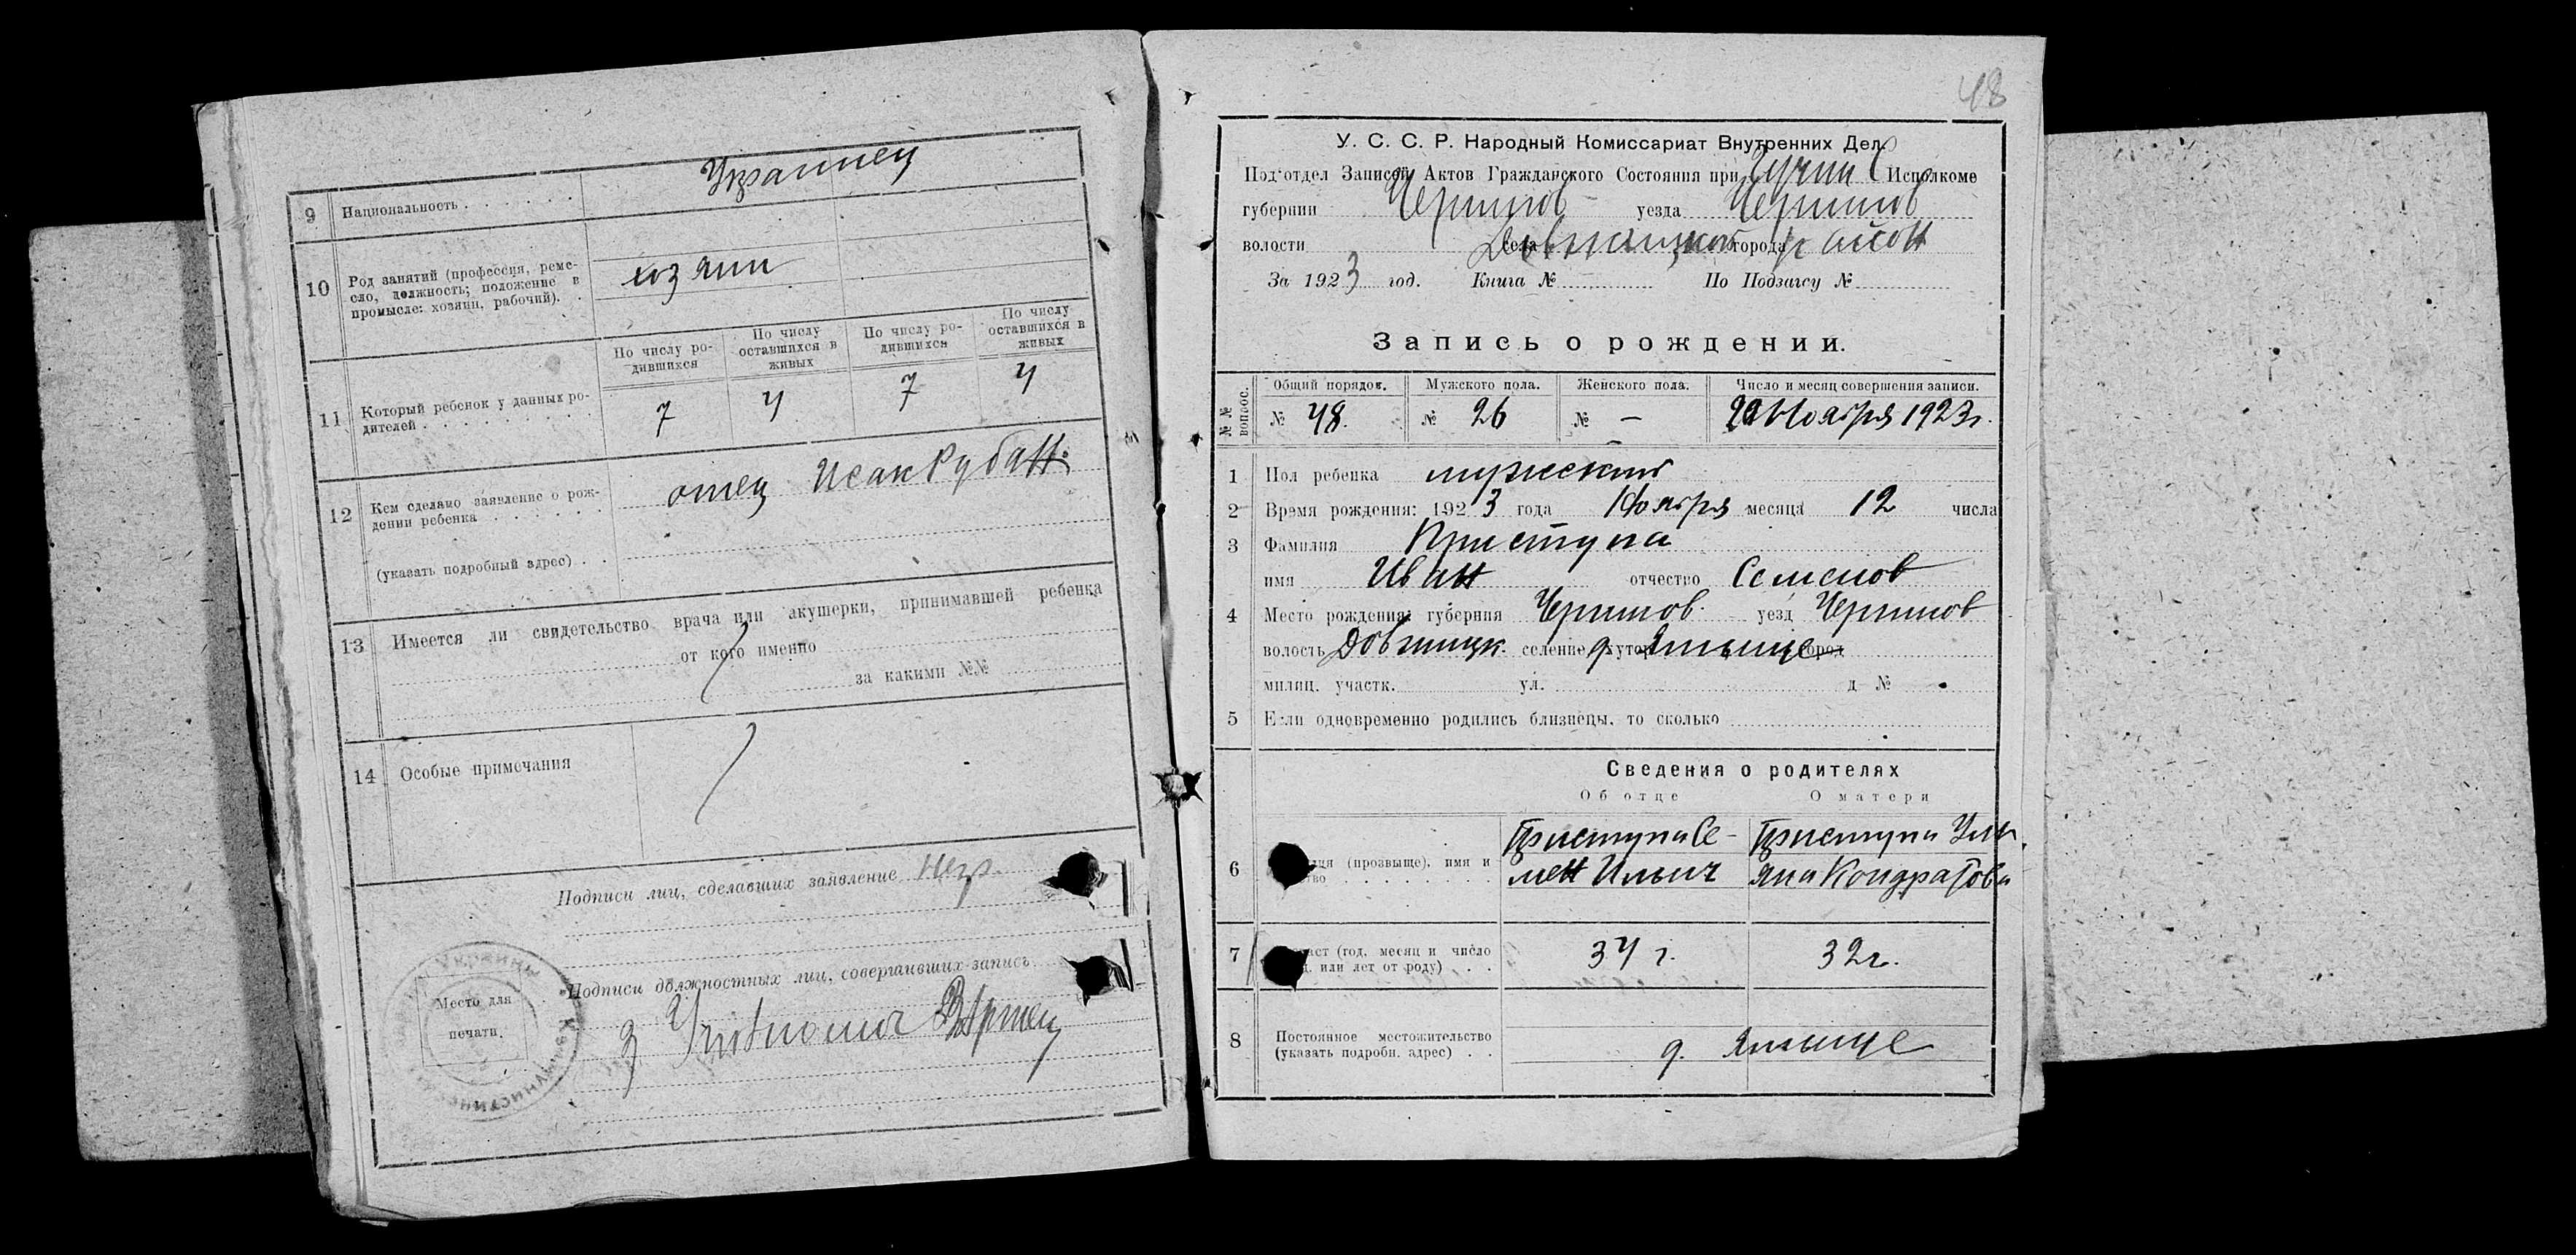 9 Национальность . . . . . .
Украинец
10 Род занятий (профессия, реме-
сло, должность; положение в
промысле: хозяин, рабочий). .
хозяин
По числу ро-
дившихся
По числу
оставшихся в
живых
По числу ро-
дившихся
По числу
оставшихся в
живых
11 Который ребенок у данных ро-
дителей . . . . . . . .
7 4 7 4
12 Кем сделано заявление о рож-
дении ребенка . . . . . .
отец Исак Рубан.
(указать подробный адрес) . .
13 Имеется ли свидетельство врача или акушерки, принимавшей ребенка
от кого именно
за какими №№
14 Особые примечания
Подписи лиц, сделавших заявление негр.
Подписи должностных лиц, совершивших запись
Место для
печати.
Украины
48
У. С. С. Р. Народный Комиссариат Внутренних Дел.
Под'отдел Записей Актов Гражданского Состояния при Исполкоме
губернии Чернигов уезда Чернигов
волости села города район
За 1923 год. Книга № По Подзагсу №
Запись о рождении.
№№ вопрос.
Общий порядок. Мужского пола. Женского пола. Число и месяц совершения записи.
№ 48. № 26 № — Ноября 1923г.
1 Пол ребенка мужской
2 Время рождения: 1923 года Ноября месяца 12 числа
3 Фамилия Приступа
имя Иван отчество Семенов
4 Место рождения: губерния Чернигов. уезд Чернигов
волость Довжицк. селение д. хутор Ямыще город
милиц. участк. ул. д №
5 Если одновременно родились близнецы, то сколько
Сведения о родителях
Об отце О матери
6 (прозвище), имя и
Приступа Се-
мен Ильич
Приступа Уль
яна Кондратова
7 (год, месяц и число
или лет от роду) . .
34 г. 32г.
8 Постоянное местожительство
(указать подробн. адрес) . .
д. Ямыще